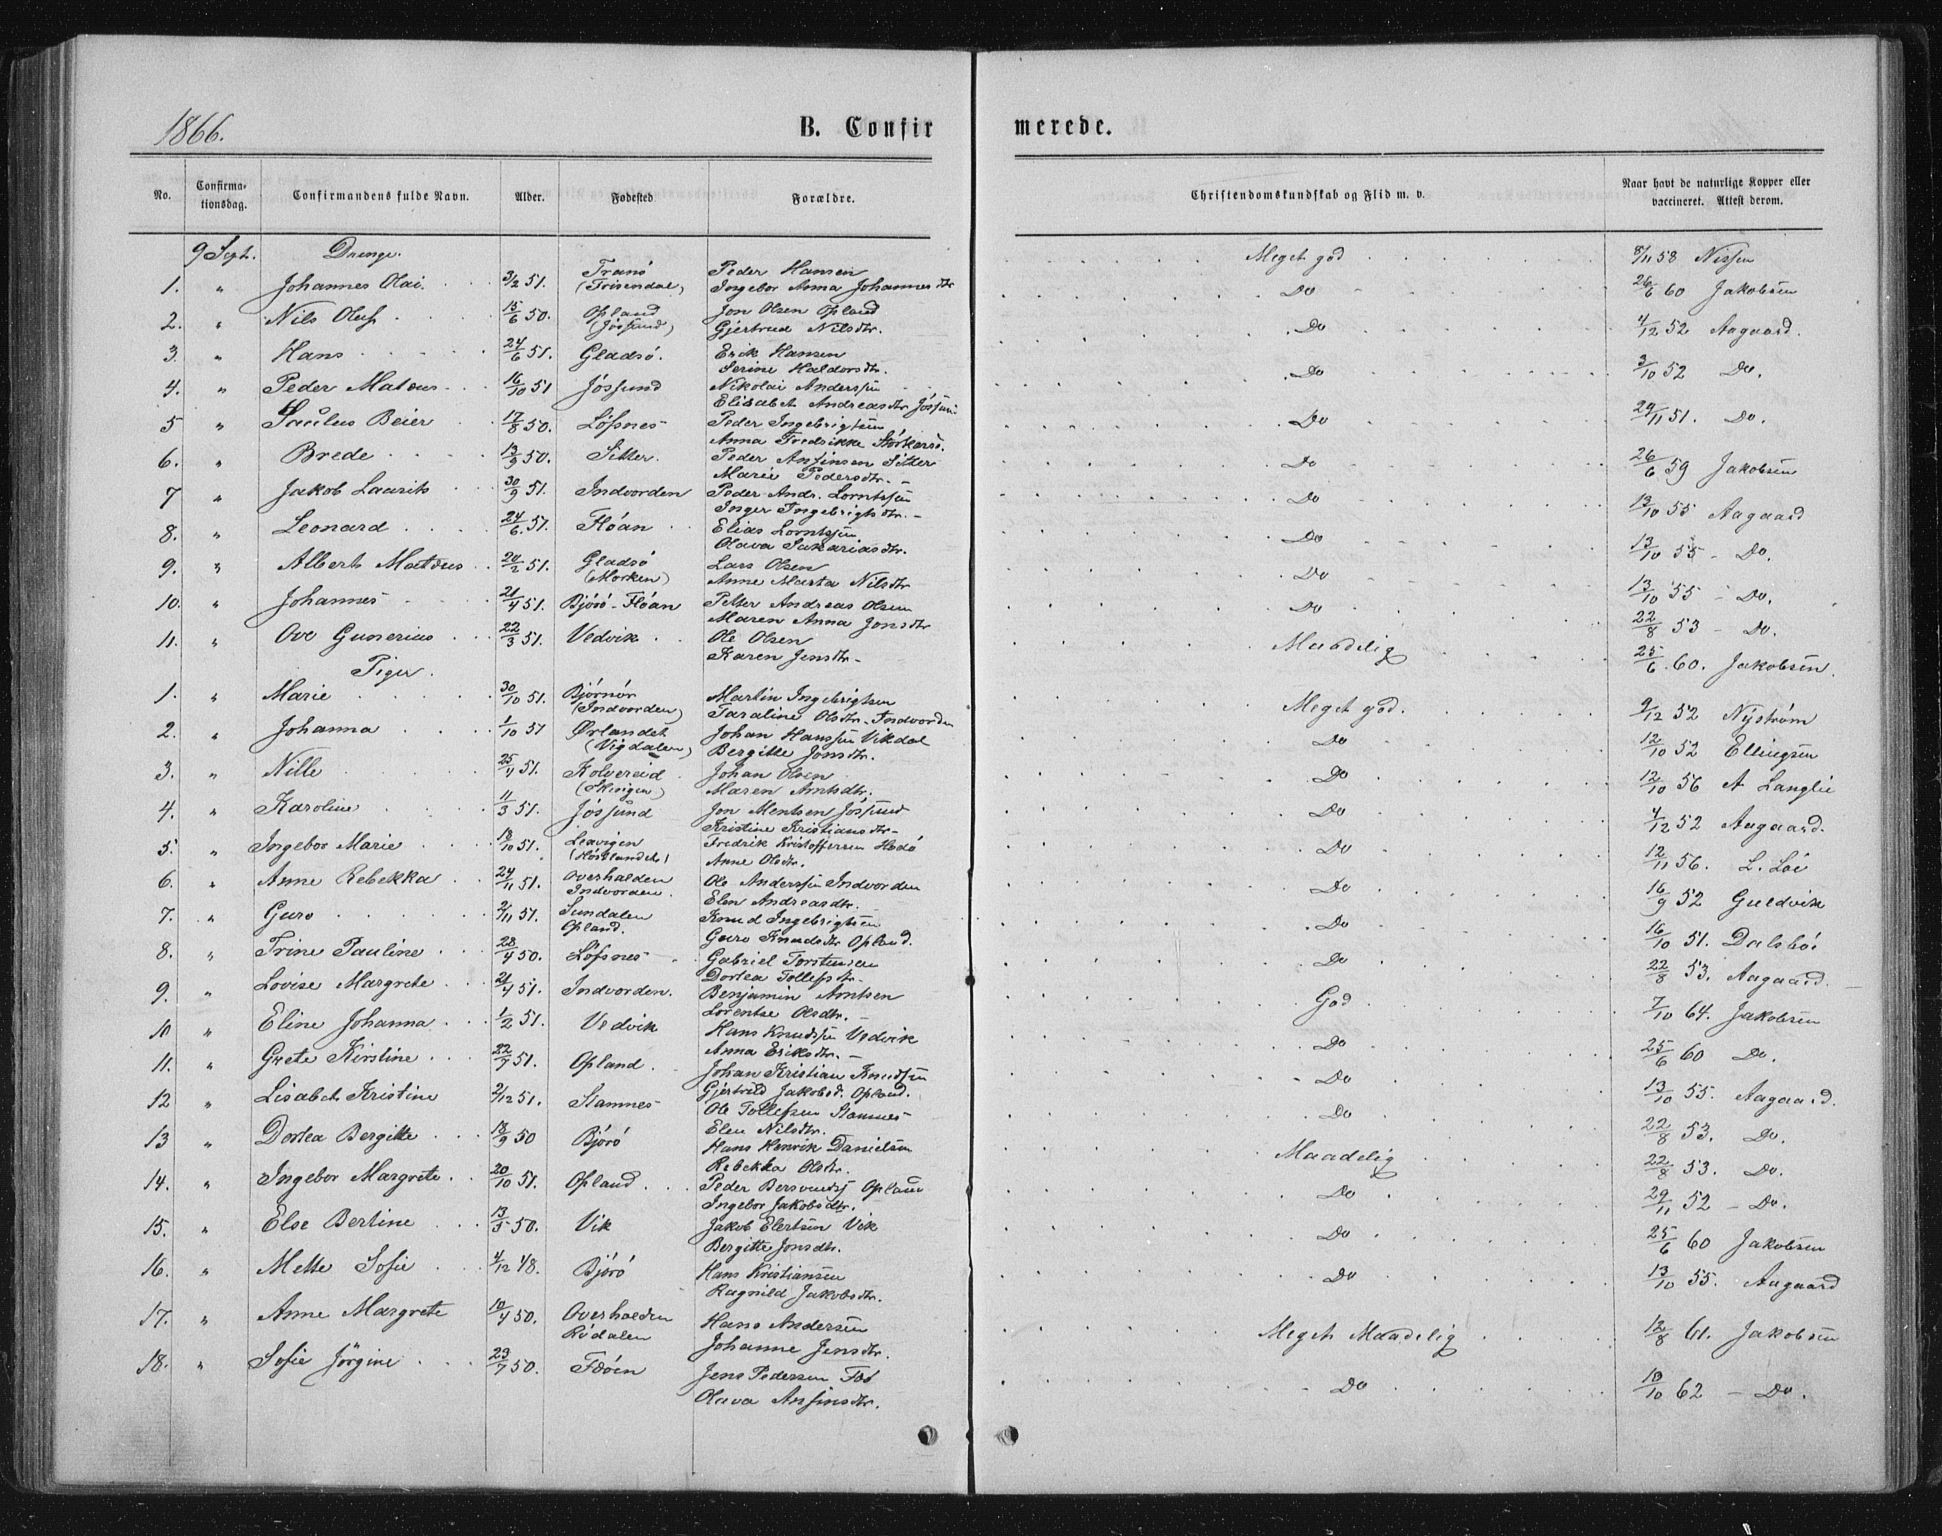 1866.
B. Confirmerede.
No. Confirmationsdag. Confirmandens fulde Navn. Alder. Fødested. Forældre. Christendomskundskab og Flid m. v. Naar havt de naturlige Kopper eller vaccineret. Attest derom.
9 Sept. Drenge.
1. " Johannes Olai. 3/12 51. Tranö (Frisendal) Peder Hansen Meget god 8/11 58 Nissen
Ingebor Anna Johannesdtr
2. " Nils Oluf 15/6 50. Opland (Jössund) Jon Olsen Opland Do 26/6 60 Jakobsen
Gjertrud Nilsdtr.
3. " Hans 24/6 51. Gladsö. Erik Hansen Do 4/12 52 Aagaard.
Serine Haldorsdtr.
4. " Peder Mateus 16/10 51 Jössund Nikolai Anderssen Do 3/10 52 Do.
Elisabet Andreasdtr Jössund
5 " Paulus Beier 17/8 50. Löfsnes Peder Ingebrigtsen Do 29/11 51. Do.
Anna Fredrikke
6. " Brede 13/9 50. Sitter. Peder Ansinsen Sitter Do 26/6 59 Jakobsen
Marie Pedersdtr.
7 " Jakob Laurits 30/9 51. Indvorden Peder Andr. Lorntssen Do 13/10 55 Aagaard
Inger Ingebrigtsdtr.
8. " Leonard 24/6 51. Flöan Elias Lorntssen Do 13/10 55 - Do.
Olava Sakariasdtr.
9. " Albert Mateus 20/2 51. Gladsö (Morken) Lars Olsen Do 13/10 55 - Do.
Anne Marta Nilsdtr
10. " Johannes 21/4 51. Björö-Flöan Petter Andreas Olsen Do 22/8 53 - Do.
Maren Anna Jonsdtr
11. " Ove Gunerius 22/3 51. Vedvik Ole Olsen Maadelig 25/6 60. Jakobsen.
Karen Jensdtr.
Piger.
1. " Marie 30/10 51. Björnör (Indvorden) Martin Ingebrigtsen Meget god. 9/12 52 Nyström
Taraline Olsdtr. Indvorden
2. " Johanna 1/10 51 Ørlandet (Vigdalen) Johan Hanssen Vikdal Do 12/10 52 Ellingsen
Bergitte Jonsdtr.
3. " Nille 25/4 51. Kolvereid (Skingen) Johan Olsen Do 12/10 56 A Langlie
Maren Arntsdtr.
4. " Karoline 11/3 51. Jössund Jon Mentsen Jössund Do 4/12 52 Aagaard.
Kristine Kristiansdtr
5. " Ingebor Marie 18/10 51. Leavigen Fredrik Kristoffersen Hodö Do 12/11 56. L. Löe
Anne Olsdtr.
6. " Anne Rebekka 24/11 51. Overhalden Indvorden. Ole Anderssen Indvorden Do 16/9 52 Guldvik
Elen Andreasdtr.
7. " Guro 2/11 51. Sundalen Opland. Knud Ingebrigtsen Do 16/10 51. Dalsbö.
Guro Knudsdtr Opland.
8. " Trine Pauline 28/4 50. Löfsnes Gabriel Torstensen Do 22/8 53. Aagaard.
Dortea Tollefsdtr.
9. " Lovise Margrete 21/4 51. Indvorden. Benjamin Arntsen God 7/10 64. Jakobsen
Lorentse Olsdtr.
10 " Eline Johanna 1/2 51. Vedvik Hans Knudssen Vedvik Do 25/6 60 Do.
Anna Eriksdtr.
11. " Grete Kirstine 22/7 51. Opland. Johan Kristian Knudssen Do 13/10 55. Aagaard.
Gjertrud Jakobsd. Opland.
12 " Lisabet Kristine 2/12 51. Stamnes Ole Tollefsen Stamnes Do 22/8 53. Do.
Elen Nilsdtr.
13 " Dortea Bergitte 18/9 50 Björö Hans Henrik Danielsen Maadelig 22/8 53. Do.
Rebekka Olsdtr.
14. " Ingebor Margrete 20/10 51. Opland. Peder Bersvendsj Opland Do 29/11 52 - Do.
Ingebor Jakobsdtr.
15. " Else Bertine 13/5 50. Vik Jakob Elertsen Vik Do 25/6 60 Jakobsen
Bergitte Jonsdtr.
16. " Mette Sofie 4/12 48. Björö Hans Kristiansen Do 13/10 55. Aagaard
Ragnild Jakobsdtr.
17. " Anne Margrete 10/4 50. Overhalden Rödalen Hans Andersen Meget Maadelig 12/8 61. Jakobsen
Johanne Jensdtr.
18. " Sofie Jörgine 23/7 50. Fæöen Jens Pedersen Fæö Do 10/10 62 - Do.
Olava Ansinsdtr.